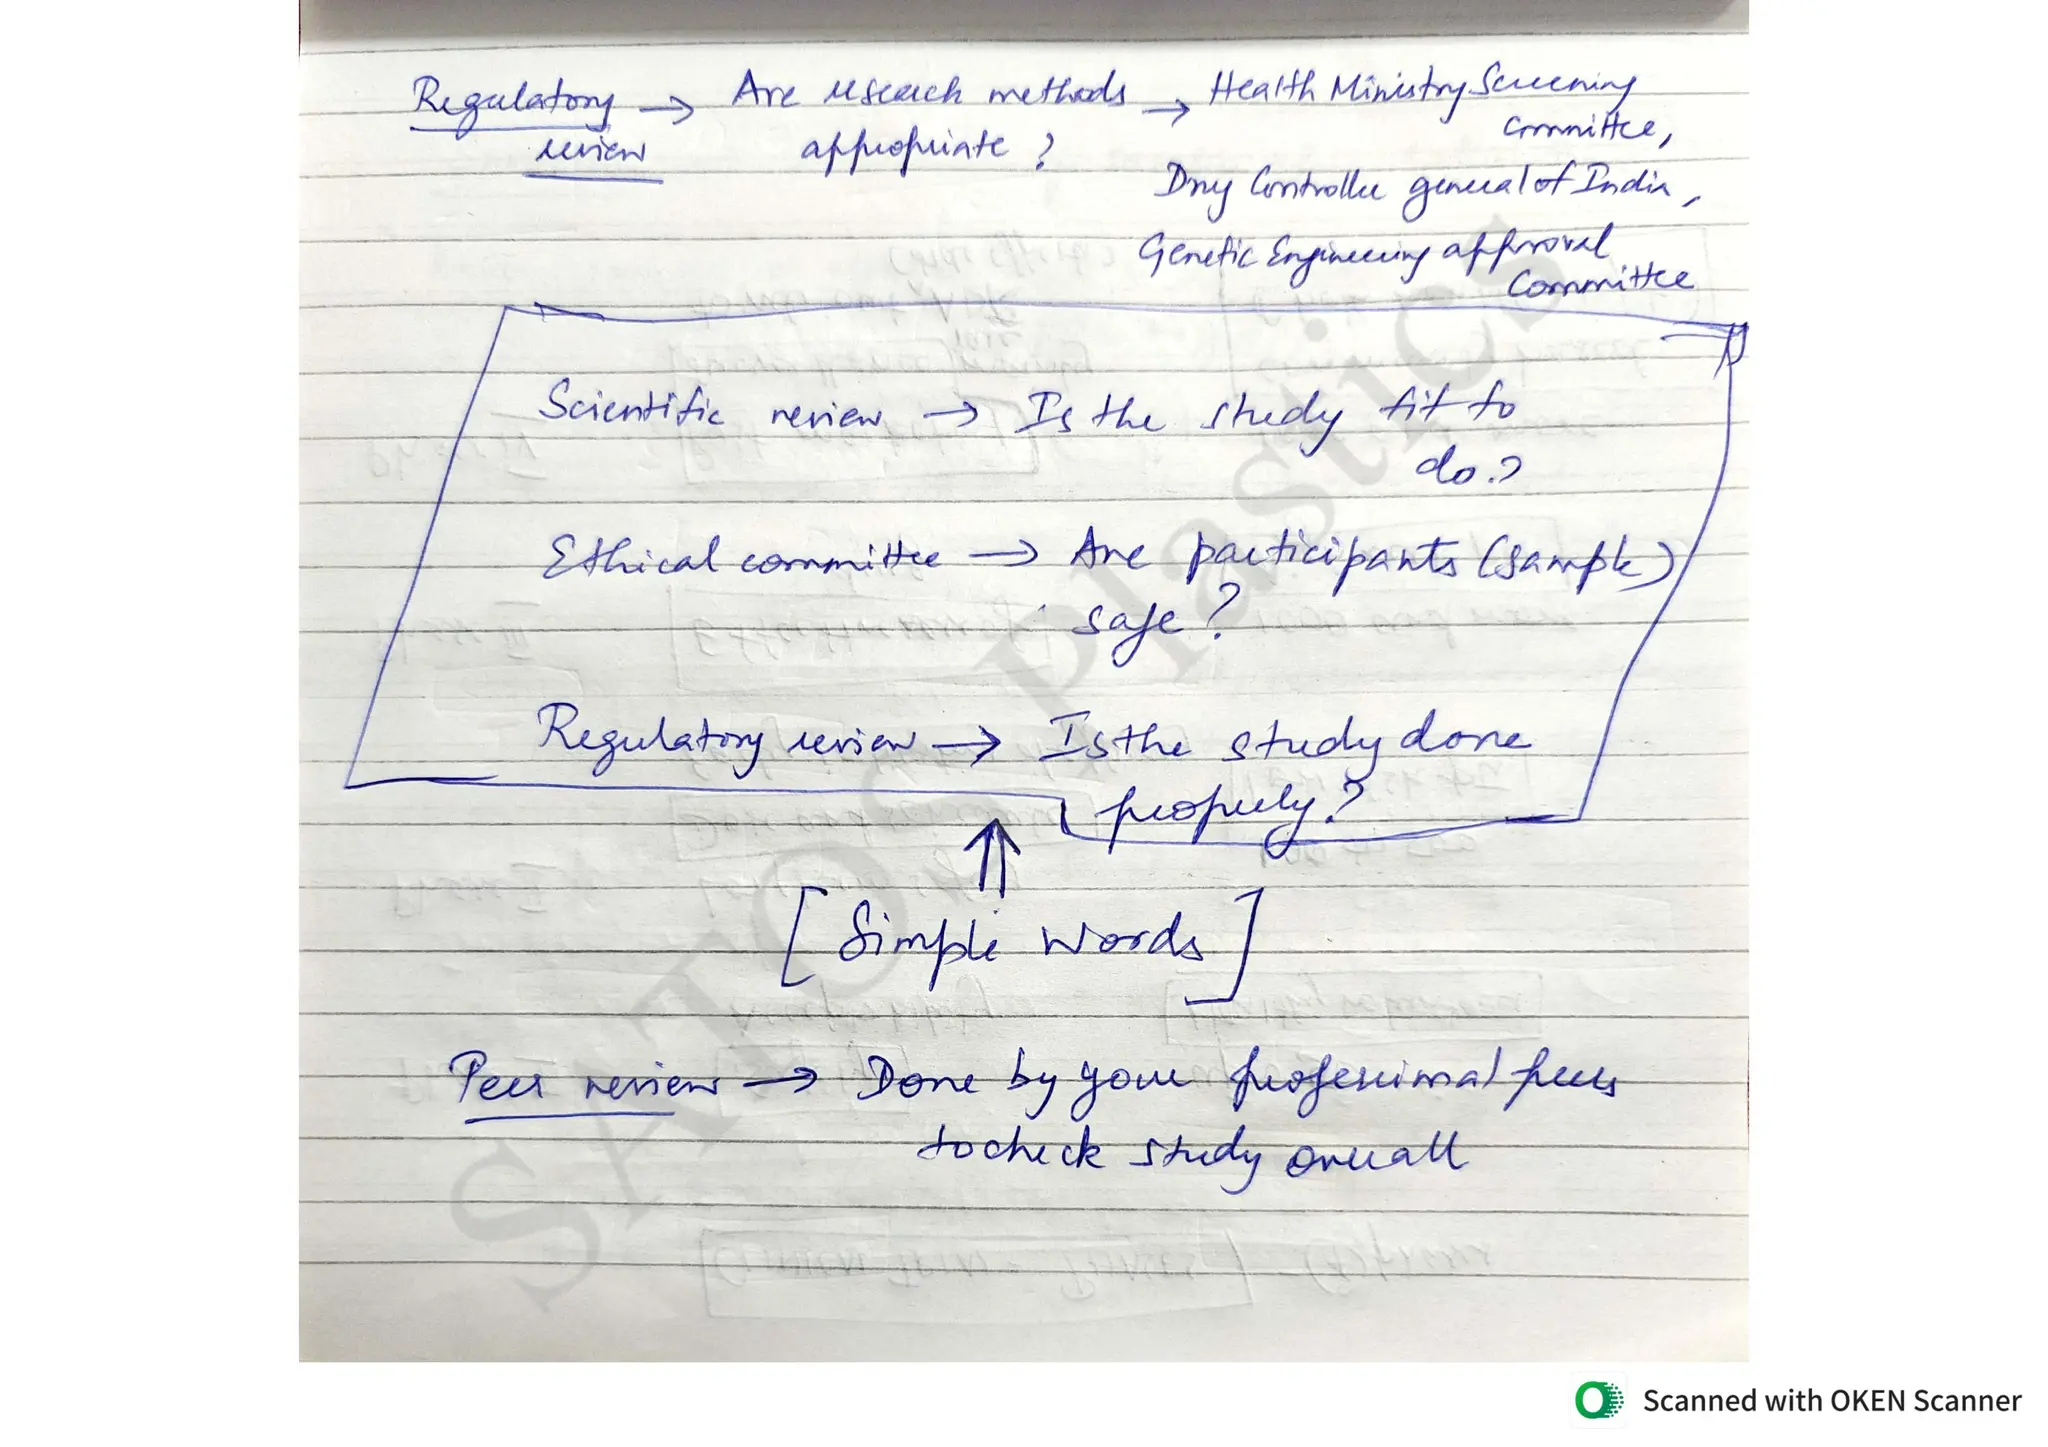 Regulatory → Are research methods → Health Ministry Screening
review appropriate ? Committee,
Drug Controller general of India,
Genetic Engineering approval
Committee
Scientific review → Is the study fit to
do?
Ethical committee → Are participants (sample)
safe ?
Regulatory review → Is the study done
properly?
[Simple Words]
Peer review → Done by your professional peers
to check study overall
SATOC Plastics
Scanned with OKEN Scanner